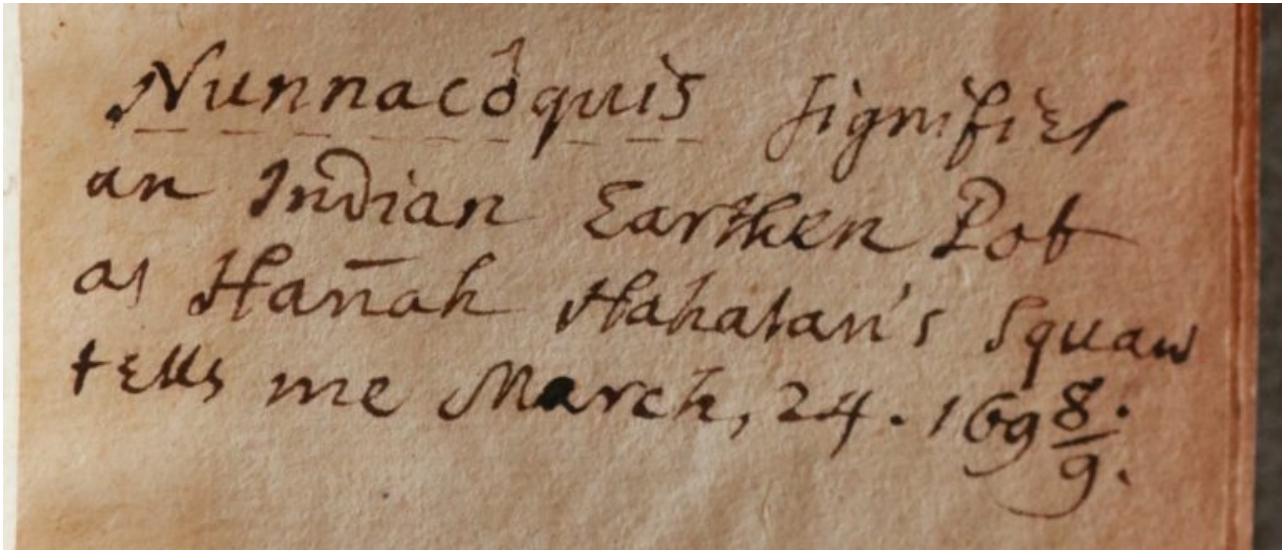 Nunnacôquis signifies
an Indian Earthen Pot
as Hanāh Hahatan's Squaw
tells me March, 24. 169 8/9.